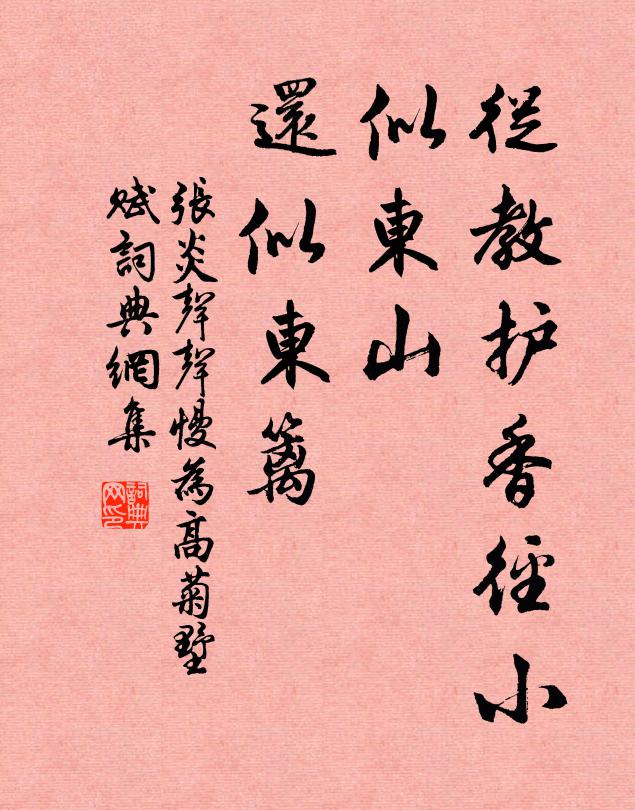 從教护香徑小
似東山
還似東籬
張炎聲聲慢為高菊墅
賦詞典網集
詞典网印